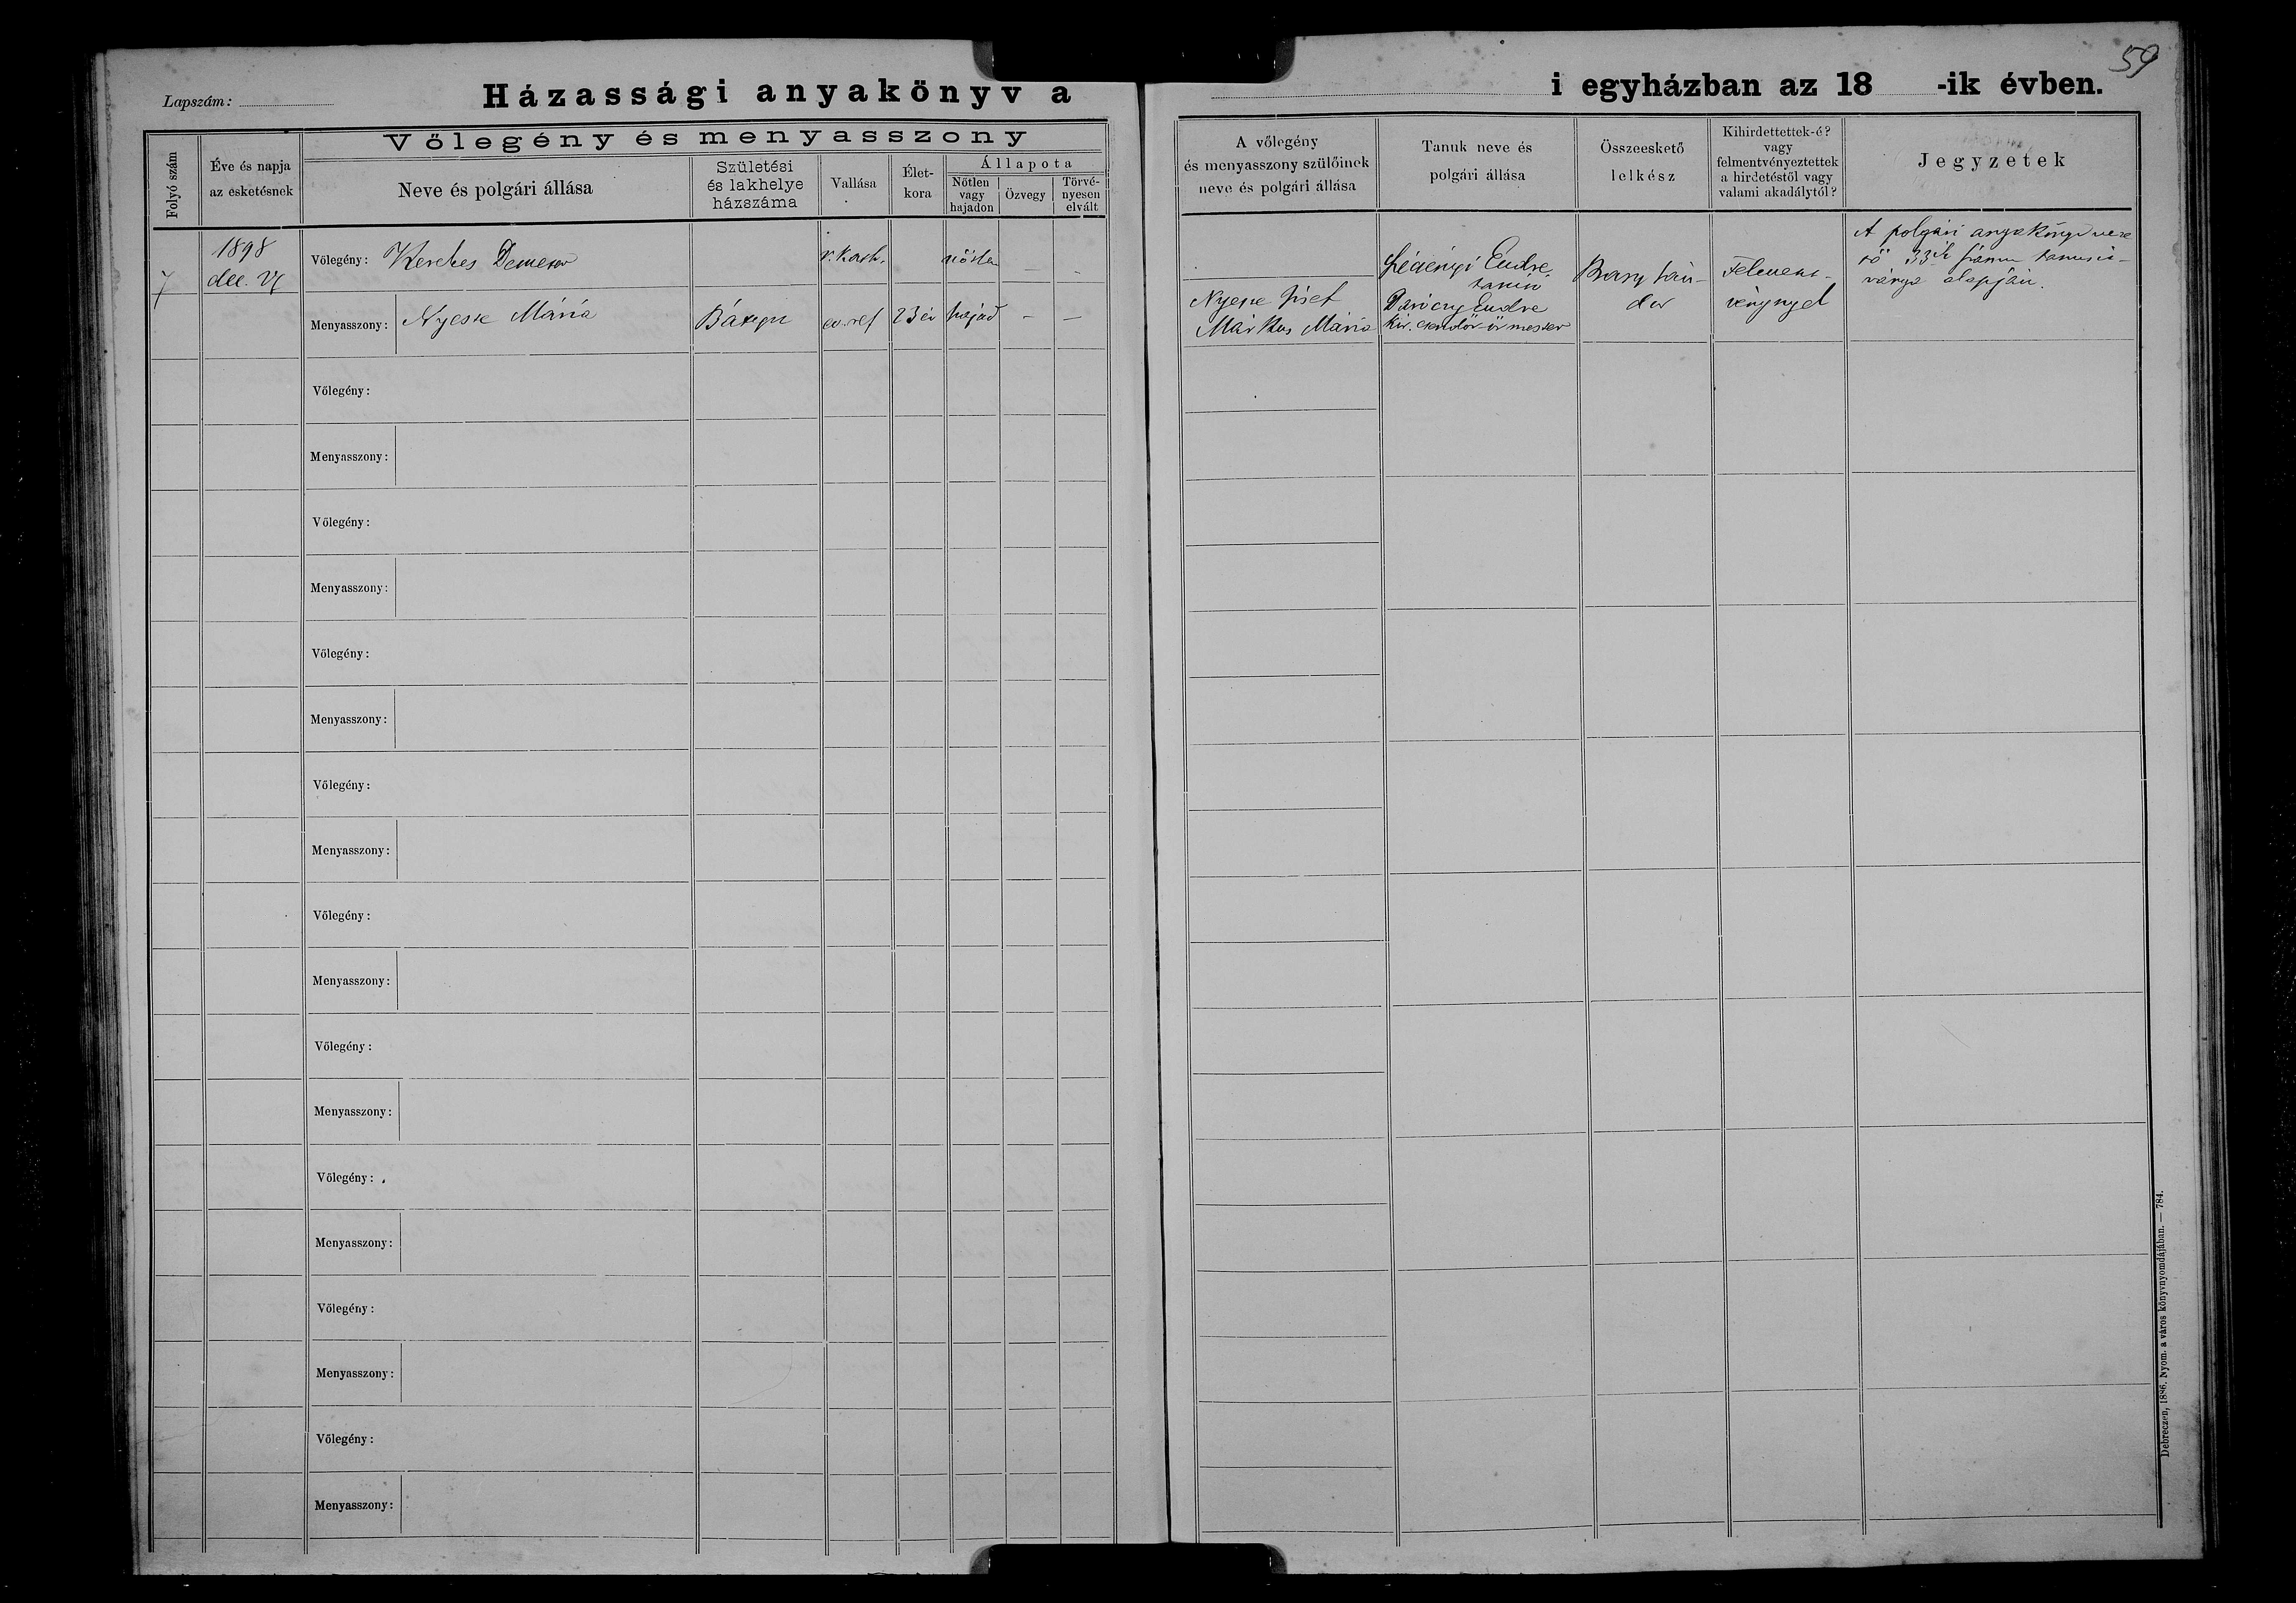 59
Lapszám:
Házassági anyakönyv a
i egyházban az 18 -ik évben.
Folyó szám
Éve és napja
az esketésnek
Vőlegény és menyasszony
Neve és polgári állása
Születési
és lakhelye
házszáma
Vallása
Élet-
kora
Állapota
Nőtlen
vagy
hajadon
Özvegy
Törvé-
nyesen
elvált
A vőlegény
és menyasszony szülőinek
neve és polgári állása
Tanuk neve és
polgári állása
Összeeskető
lelkész
Kihirdettettek-é?
vagy
felmentvényeztettek
a hirdetéstől vagy
valami akadálytól?
Jegyzetek
7
1898
dec. 27
Vőlegény: Kerekes Demeter
r. kath.
nőtlen
— -
Menyasszony: Nyeste Mária
ev. ref
23 év
hajad
— —
József
Márkus Mária
Endre
tanító
Daróczy Endre
kir. csendőr-őrmester
Sán-
dor
Felment-
vénynyel
A polgári anyakönyvveze
tő 33ik számu tanusit-
ványa alapján.
Vőlegény:
Menyasszony:
Vőlegény:
Menyasszony:
Vőlegény:
Menyasszony:
Vőlegény:
Menyasszony:
Vőlegény:
Menyasszony:
Vőlegény:
Menyasszony:
Vőlegény:
Menyasszony:
Vőlegény:
Menyasszony:
Vőlegény:
Menyasszony:
Debreczen, 1886. Nyom. a város könyvnyomdájában. — 784.